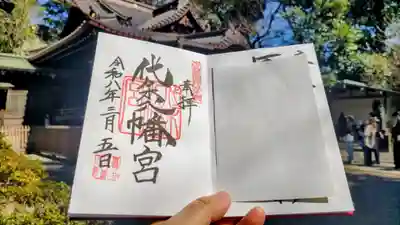 奉拝
代々木八幡宮
令和八年二月五日